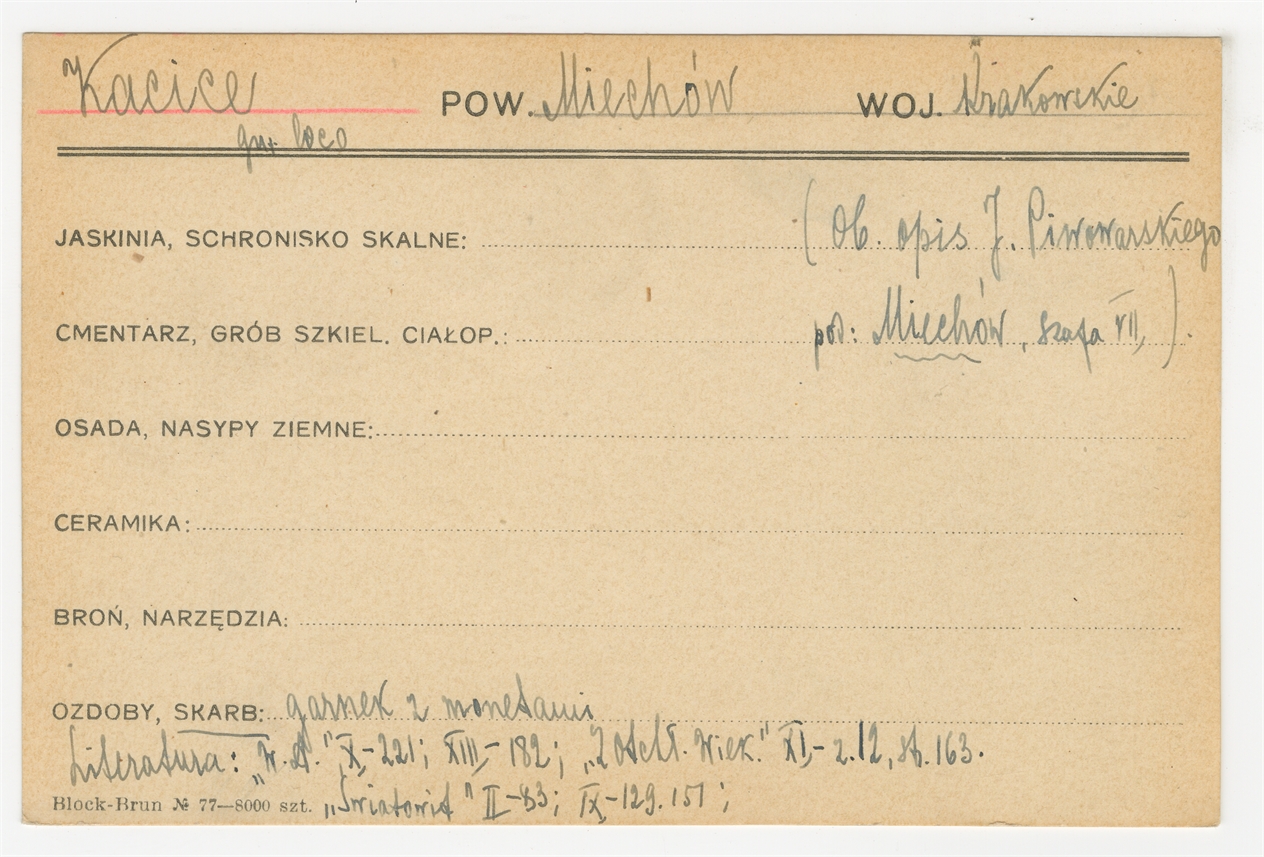 Kacice POW. Miechów WOJ. Krakowskie
gm. loco
JASKINIA, SCHRONISKO SKALNE: (Ob. opis J. Piwowarskiego
CMENTARZ, GRÓB SZKIEL. CIAŁOP.: pod: Miechów, szafa VII, ).
OSADA, NASYPY ZIEMNE:
CERAMIKA:
BROŃ, NARZĘDZIA:
OZDOBY, SKARB: garnek z monetami
Literatura: "W.A." X,-221; XIII,-182; „Z Otchł. Wiek." XI,- z.12, st. 163.
Block-Brun № 77—8000 szt. „Światowit" II-83; IX,-129. 151;